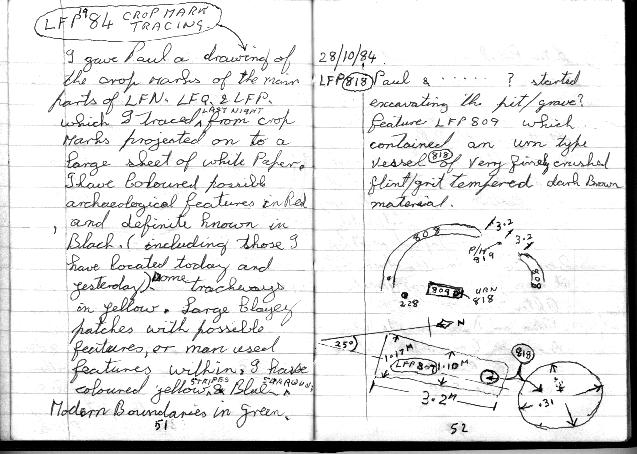 LFP 19 84 CROP MARK
TRACING.
I gave Paul a drawing of
the crop marks of the main
parts of LFN. LFQ. & LFP.
which I traced LAST NIGHT from crop
Marks projected on to a
large sheet of white Paper.
I have Coloured possible
archaeological features in Red
and definite known in
Black. ( including those I
have located today and
yesterday). Some trackways
in yellow. Large Clayey
patches with possible
features, or man used
features within, I have
coloured yellow, STRIPES & Blue
Modern Boundaries in Green.
51
28/10/84.
LFP 818 Paul & ······ ? started
excavating the pit/grave?
feature LFP 809 which
contained an urn type
vessel 818 of very finely crushed
flint/grit tempered dark Brown
material.
808
3.2
P/H
819
3.2
808
228
809
URN
818
N
25°
1.17M
LFP 809
1.10M
3.2M
818
.31
52